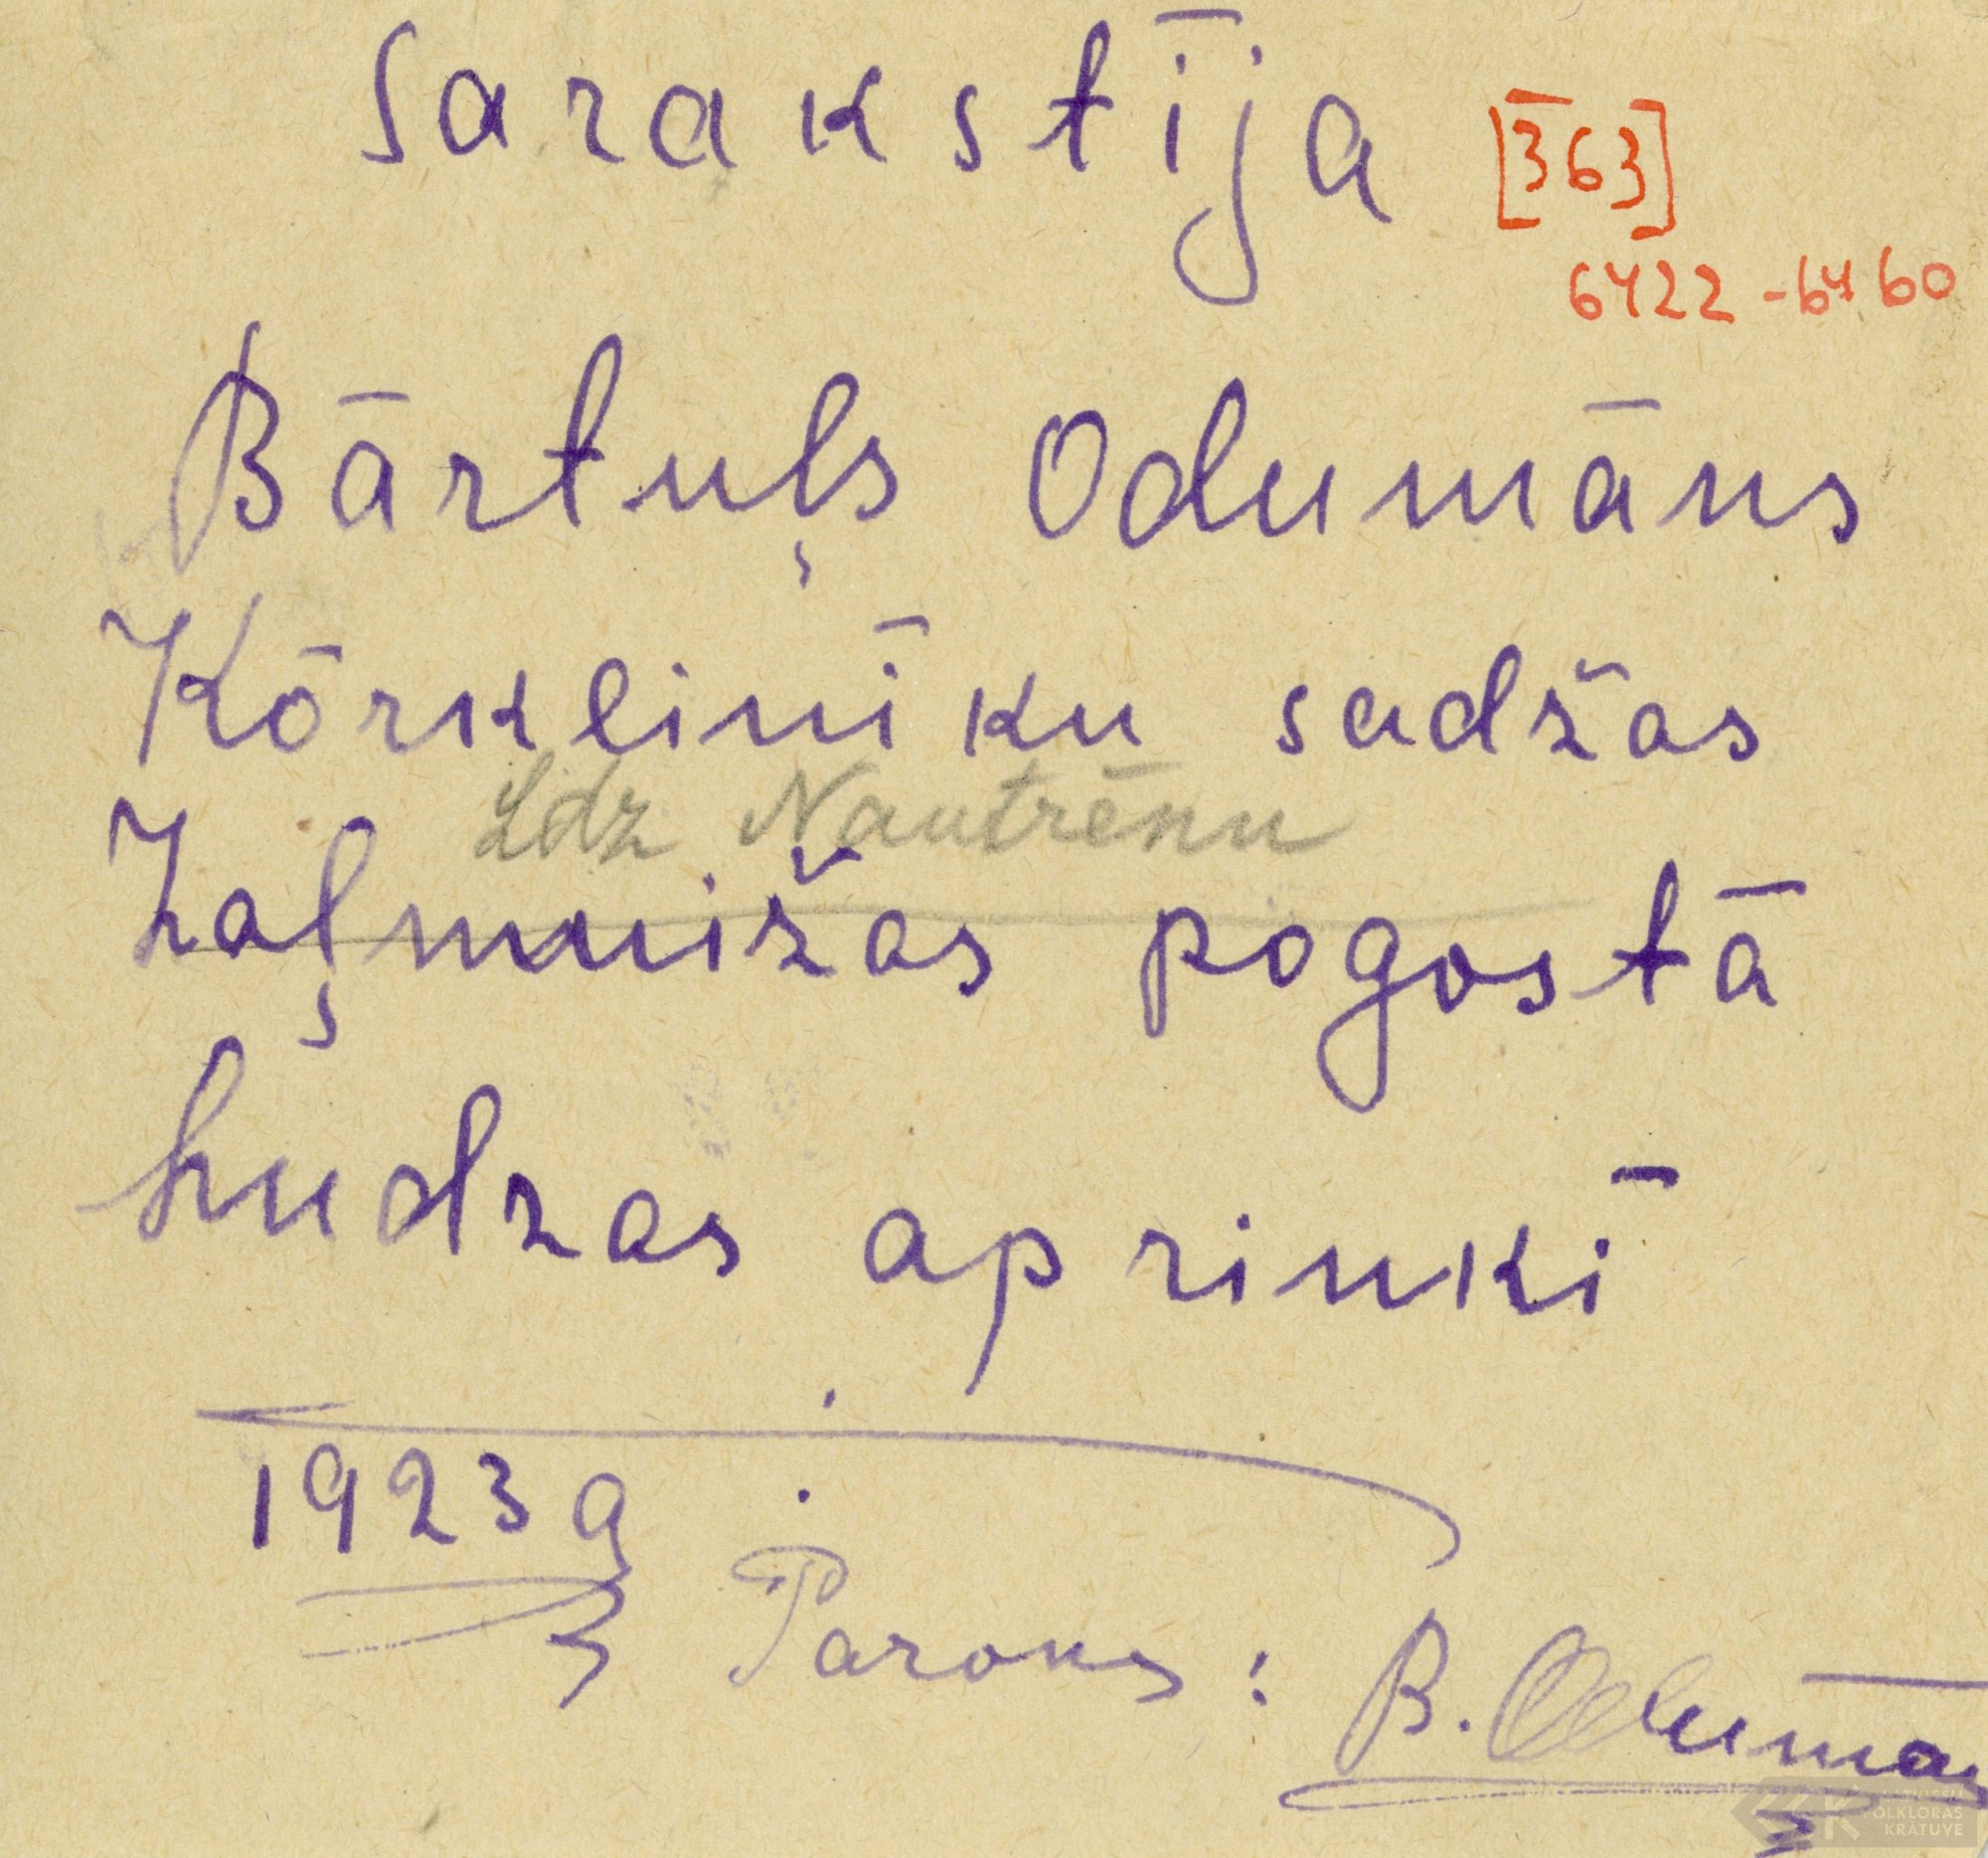 Sarakstīja [363]
6422 - 6460
Bārtuļs Odumāns
Kōrklinīku sadžas
Ldz Nautrēnu
Zaļmuižas pogostā
Ludzas aprinkī
1923 g.
Parons: B. Oduma
FOLKLORAS
KRĀTUVE